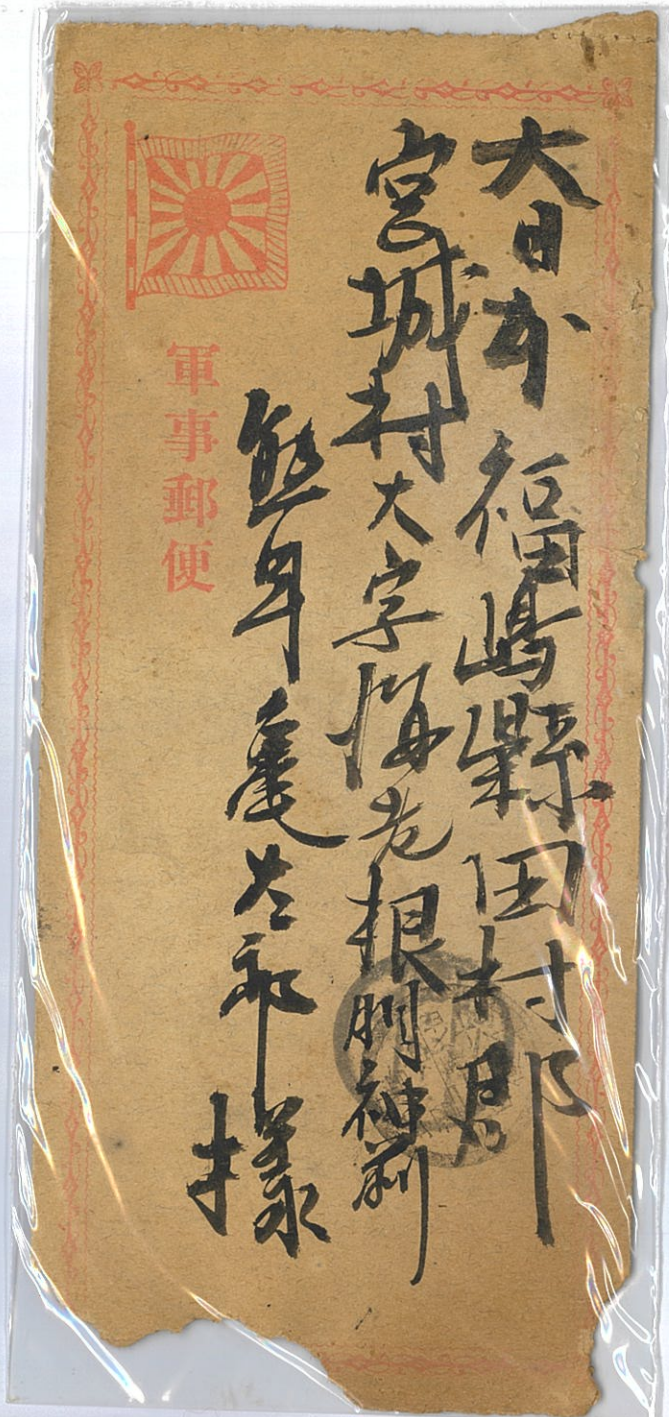 大日本 福嶋縣田村郡
宮城村大字海老根明神前
熊耳亀太郎様
軍事郵便